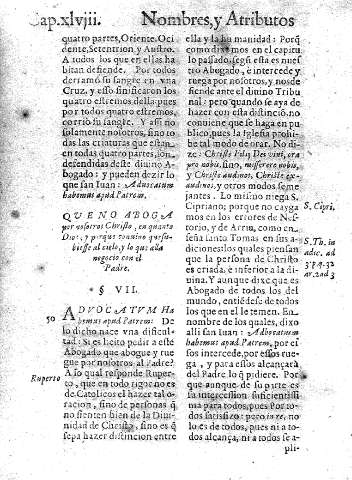 Cap.xlviij. Nombres, y Atributos
quatro partes, Oriente, Oci
dente, Setentrion, y Austro.
A todos los que en ellas ha
bitan defiende. Por todos
derramó su sangre en vna
Cruz, y esso sinificaron los
quatro estremos della pues
por todos quatro estremos,
corrio su sangre. Y assi no
solamente nosotros, sino to
das las criaturas que estan
en todas quatro partes, son
defendidas deste diuino A-
bogado: y pueden dezir lo
que san Iuan: Aduocatum
habemus apud Patrem.
QVE NO ABOGA
por nosotros Christo, en quanto
Dios, y porque conuino que su-
biesse al cielo, y lo que alla
negocio con el
Padre.
§ VII.
50
ADVOCATVM Ha
bemus apud Patrem: De
lo dicho nace vna dificul-
tad: Si es licito pedir a este
Abogado que abogue y rue
gue por nosotros al Padre?
A lo qual responde Ruper-
Ruperto
to, que en todo rigor no es
de Catolicos el hazer tal o-
racion, sino de personas q̃
no sienten bien de la Diui-
nidad de Christo, sino es q̃
sepa hazer distincion entre
ella y la humanidad: Porq̃
como diximos en el capitu
lo passado, segũ esta es nues
tro Abogado, e intercede y
ruega por nosotros, y nos de
fiende ante el diuino Tribu
nal: pero quando se aya de
hazer con esta distinciõ, no
conuiene que se haga en pu
blico, pues la Iglesia prohi-
be tal modo de orar. No di
ze: Christe Fili Dei viui, ora
pro nobis, sino, miserere nobis,
y Christe audinos, Christe ex-
audinos, y otros modos seme
jantes. Lo mismo niega S.
S. Cipri.
Cipriano; porque no cayga
mos en los errores de Nes-
torio, y de Arrio, como en
S. Th. in
seña santo Tomas en sus a-
diciones: los quales piensan
que la persona de Christo
es criada, e inferior a la di-
uina. Y aunque dize que es
Abogado de todos los del
mundo, entiẽdese de todos
los que en el le temen. En
nombre de los quales, dixo
alli san Iuan: Aduocatum
habemus apud Patrem, por ei
sos intercede, por essos rue-
ga, y para essos alcançará
del Padre lo q̃ pidiere. Por
que aunque de su parte es
su intercession suficientissi
ma para todos, pues Por to-
dos satisfizo: pero in re, no
lo es de todos, pues ni a to-
dos alcança, ni a todos se a
pli-